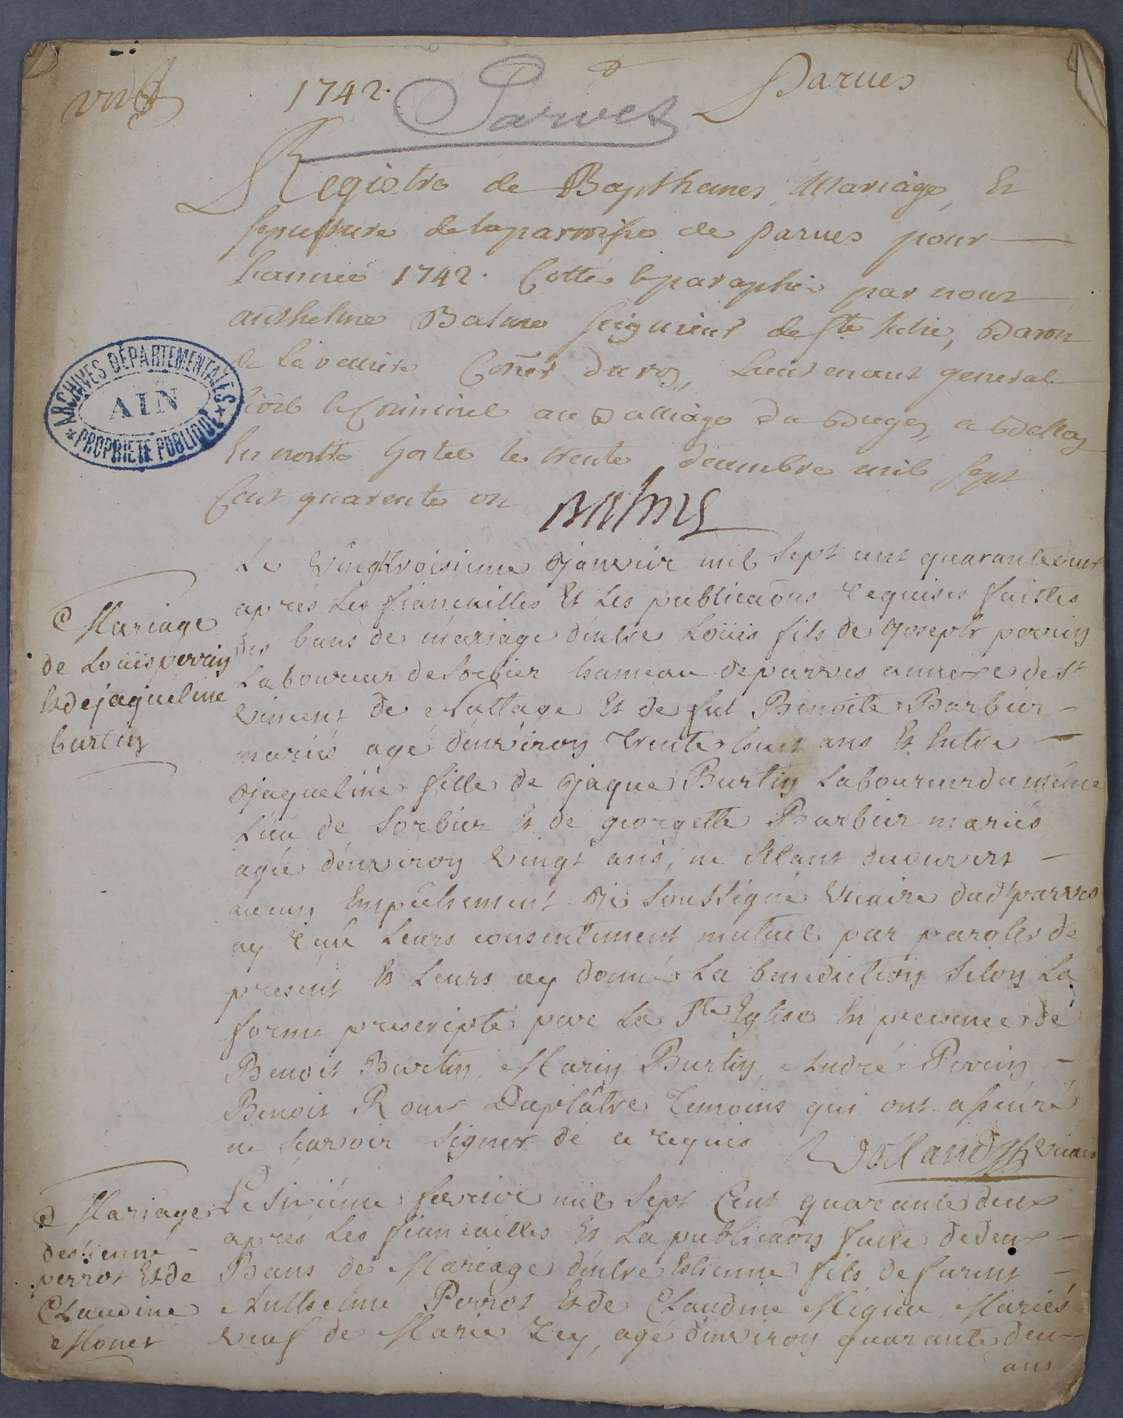 1742.
Parves
Parues
Registre de Bapthemes, Mariage, Et
sepulture de la parroisse de parues pour
Lannée 1742. Cottée & paraphée par nous
anthelme Balme seigneur de Ste Julie, Baron
de Conér du roy, Lieutenant general
Civil & Criminel au Balliage du Bugey, a Belley
En nostre hostel le trente decembre mil sept
Cent quarente un
Balme
ARCHIVES DÉPARTEMENTALES
AIN
PROPRIÉTÉ PUBLIQUE
Mariage
de Loüis perrin
Et de jaqueline
burtin
Le vingtroisieme janvier mil sept cent quarante deux
apres Les fiancailles Et Les publicaõns requises faittes
des bans de mariage d'entre Loüis fils de Joseph perrin
Laboureur de Sorbier hameau de parves annexe de st
vincent de Nattage Et de fut Benoite Barbier
mariés agé d'environ trente huit ans Et Entre
jaqueline fille de jaque Burtin Laboureur du même
Lieu de Sorbier Et de georgette Barbier mariés
agée d'environ vingt ans, ne s'étant decouvert
aucun Empêchement je soussigné vicaire dudt parves
ay reçu Leurs consentement mutuel par paroles de
present Et Leurs ay donné La benediction selon La
forme prescripte par La Ste Eglise En presence de
Benoit Burtin, Marin Burtin, André Perrin
Benoit Roux Duplâtre temoins qui ont asseuré
ne sçavoir signer de ce requis
vicaire
Mariage
d'estienne
perrot Et de
Claudine
Monet
Le sixiéme fevrier mil sept Cent quarante deux
apres Les fiancailles Et La publicaõn faite de deux
Bans de Mariage d'entre Estienne fils de furent
Anthelme Perrot Et de Claudine Mariés
veuf de Marie Rey, agé d'environ quarante deux
ans